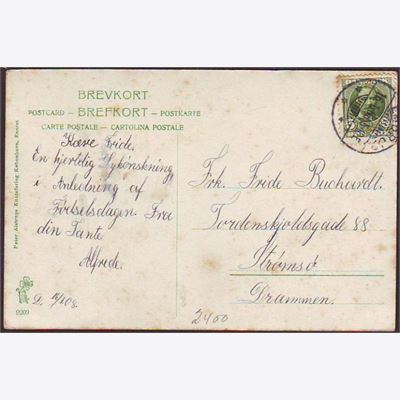 BREVKORT
POSTCARD - BREFKORT - POSTKARTE
CARTE POSTALE - CARTOLINA POSTALE
Kære Fride.
En hjertelig Lykønskning
i Anledning af
Fødselsdagen. Fra
din Tante
Alfrede.
Frk. Fride Buchardt.
Tordenskjoldsgade 88
Strømsø
Drammen.
2400
Peter Alstrups Kunstforlag, København, Eneret
9209